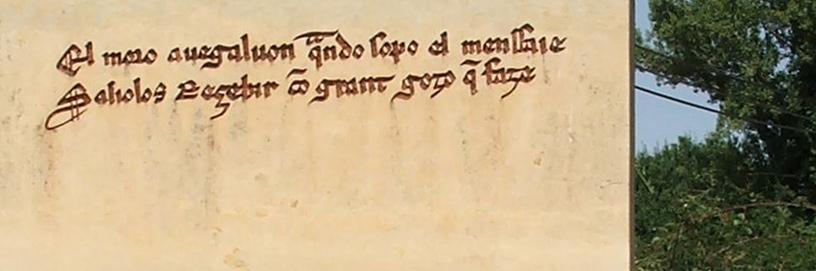 El moro auegaluon q̃ndo sopo el menssaie
Saliolos Reçebir cõ grant gozo q̃ faze